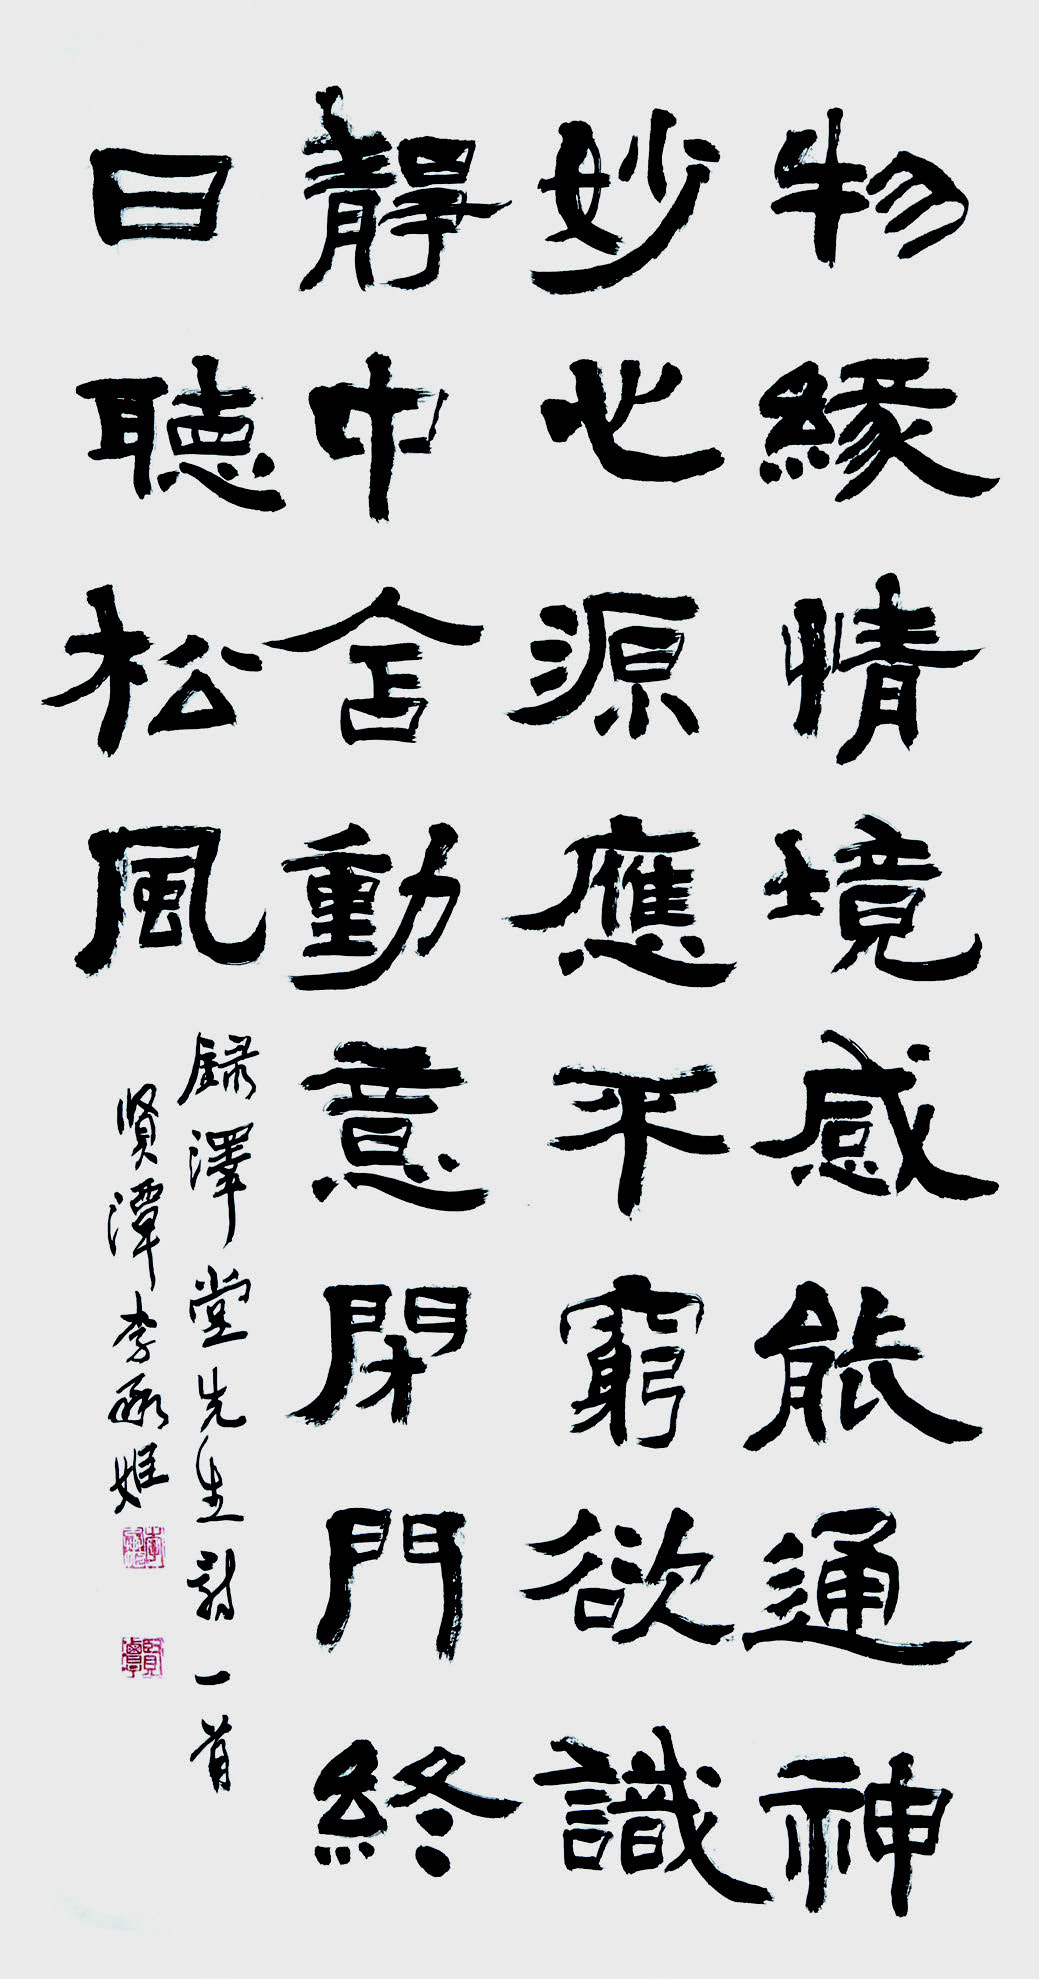 物緣情境感能通神
妙心源應平窮欲識
靜中含動意閉門終
日聽松風
錄澤堂先生詩一首
賢潭李承姬